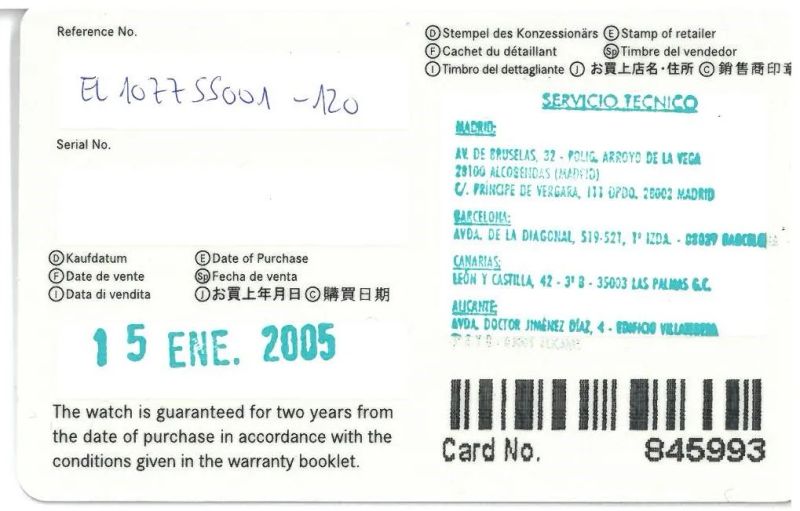 Reference No.
EL 1077 SS001 -120
Serial No.
Ⓓ Kaufdatum Ⓔ Date of Purchase
Ⓕ Date de vente Ⓢp Fecha de venta
Ⓘ Data di vendita Ⓙ お買上年月日 Ⓒ 購買日期
15 ENE. 2005
The watch is guaranteed for two years from
the date of purchase in accordance with the
conditions given in the warranty booklet.
Ⓓ Stempel des Konzessionärs Ⓔ Stamp of retailer
Ⓕ Cachet du détaillant Ⓢp Timbre del vendedor
Ⓘ Timbro del dettagliante Ⓙ お買上店名・住所 Ⓒ 銷售商印章
SERVICIO TECNICO
MADRID:
AV. DE BRUSELAS, 32 - POLIG. ARROYO DE LA VEGA
28100 ALCOBENDAS (MADRID)
C/. PRÍNCIPE DE VERGARA, 111 DPDO. 28002 MADRID
BARCELONA:
AVDA. DE LA DIAGONAL, 519-521, 1º IZDA. -
CANARIAS:
LEÓN Y CASTILLA, 42 - 3º B - 35003 LAS PALMAS G.C.
ALICANTE:
AVDA. DOCTOR JIMÉNEZ DÍAZ, 4 - EDIFICIO
Card No. 845993